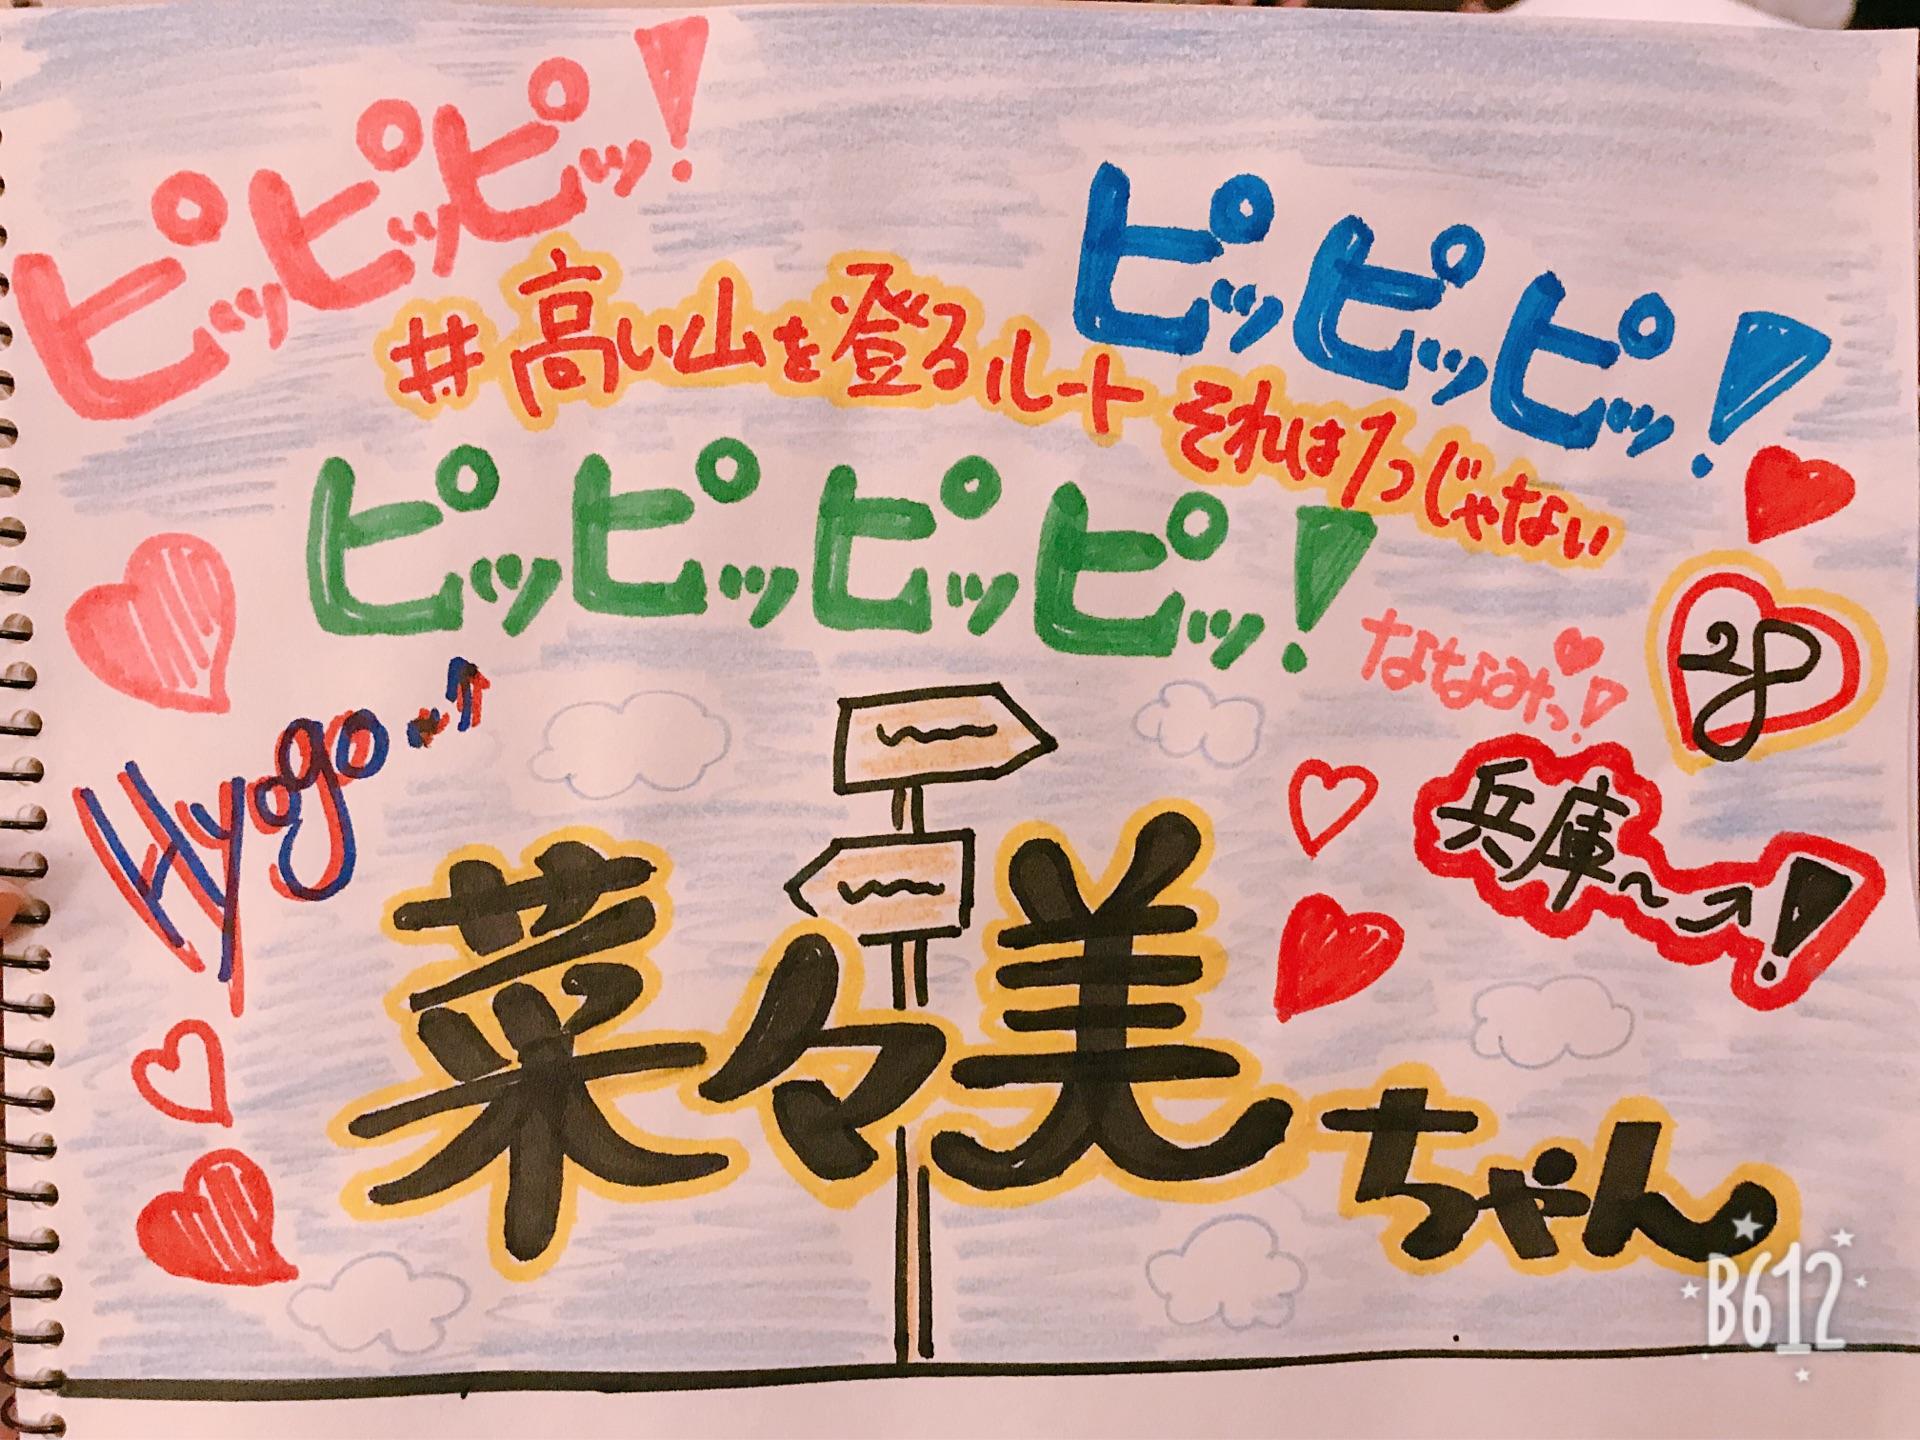 ピッピッピッ!
ピッピッピッ!
#高い山を登るルート それは1つじゃない
ピッピッピッピッ!
ななみっ!
Hyogo
兵庫〜!
菜々美ちゃん
B612